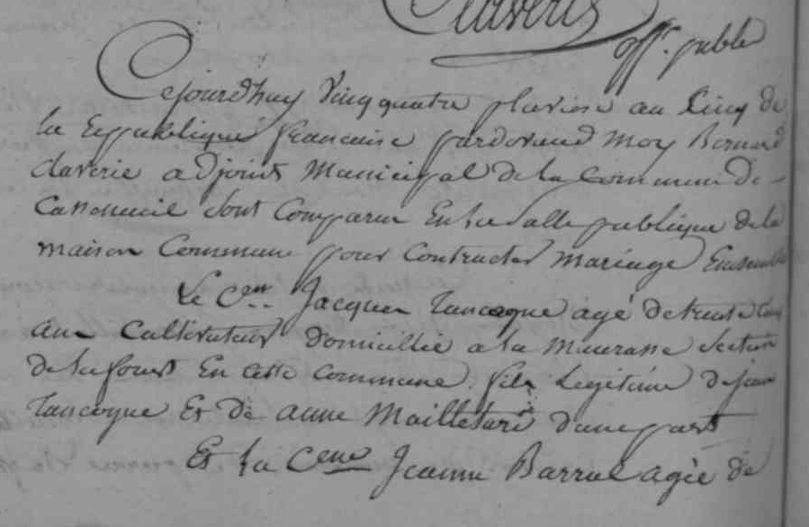 Claverie
off. public
Cejourdhuy Vingquatre pluviose an Cinq de
la Republique francaise pardevend moy Bernard
claverie adjoint Municipal de la Commune de
Casseneuil sont Comparu En la salle publique de la
maison Commune pour Contracter mariage Ensemble
Le Cen. Jacques Tancogne agé de trente Cinq
ans Cultivateur domicillié a la Section
de En cette Commune fils Legitime de jean
Tancogne Et de anne dune part
Et La Cene Jeanne Barrue agée de